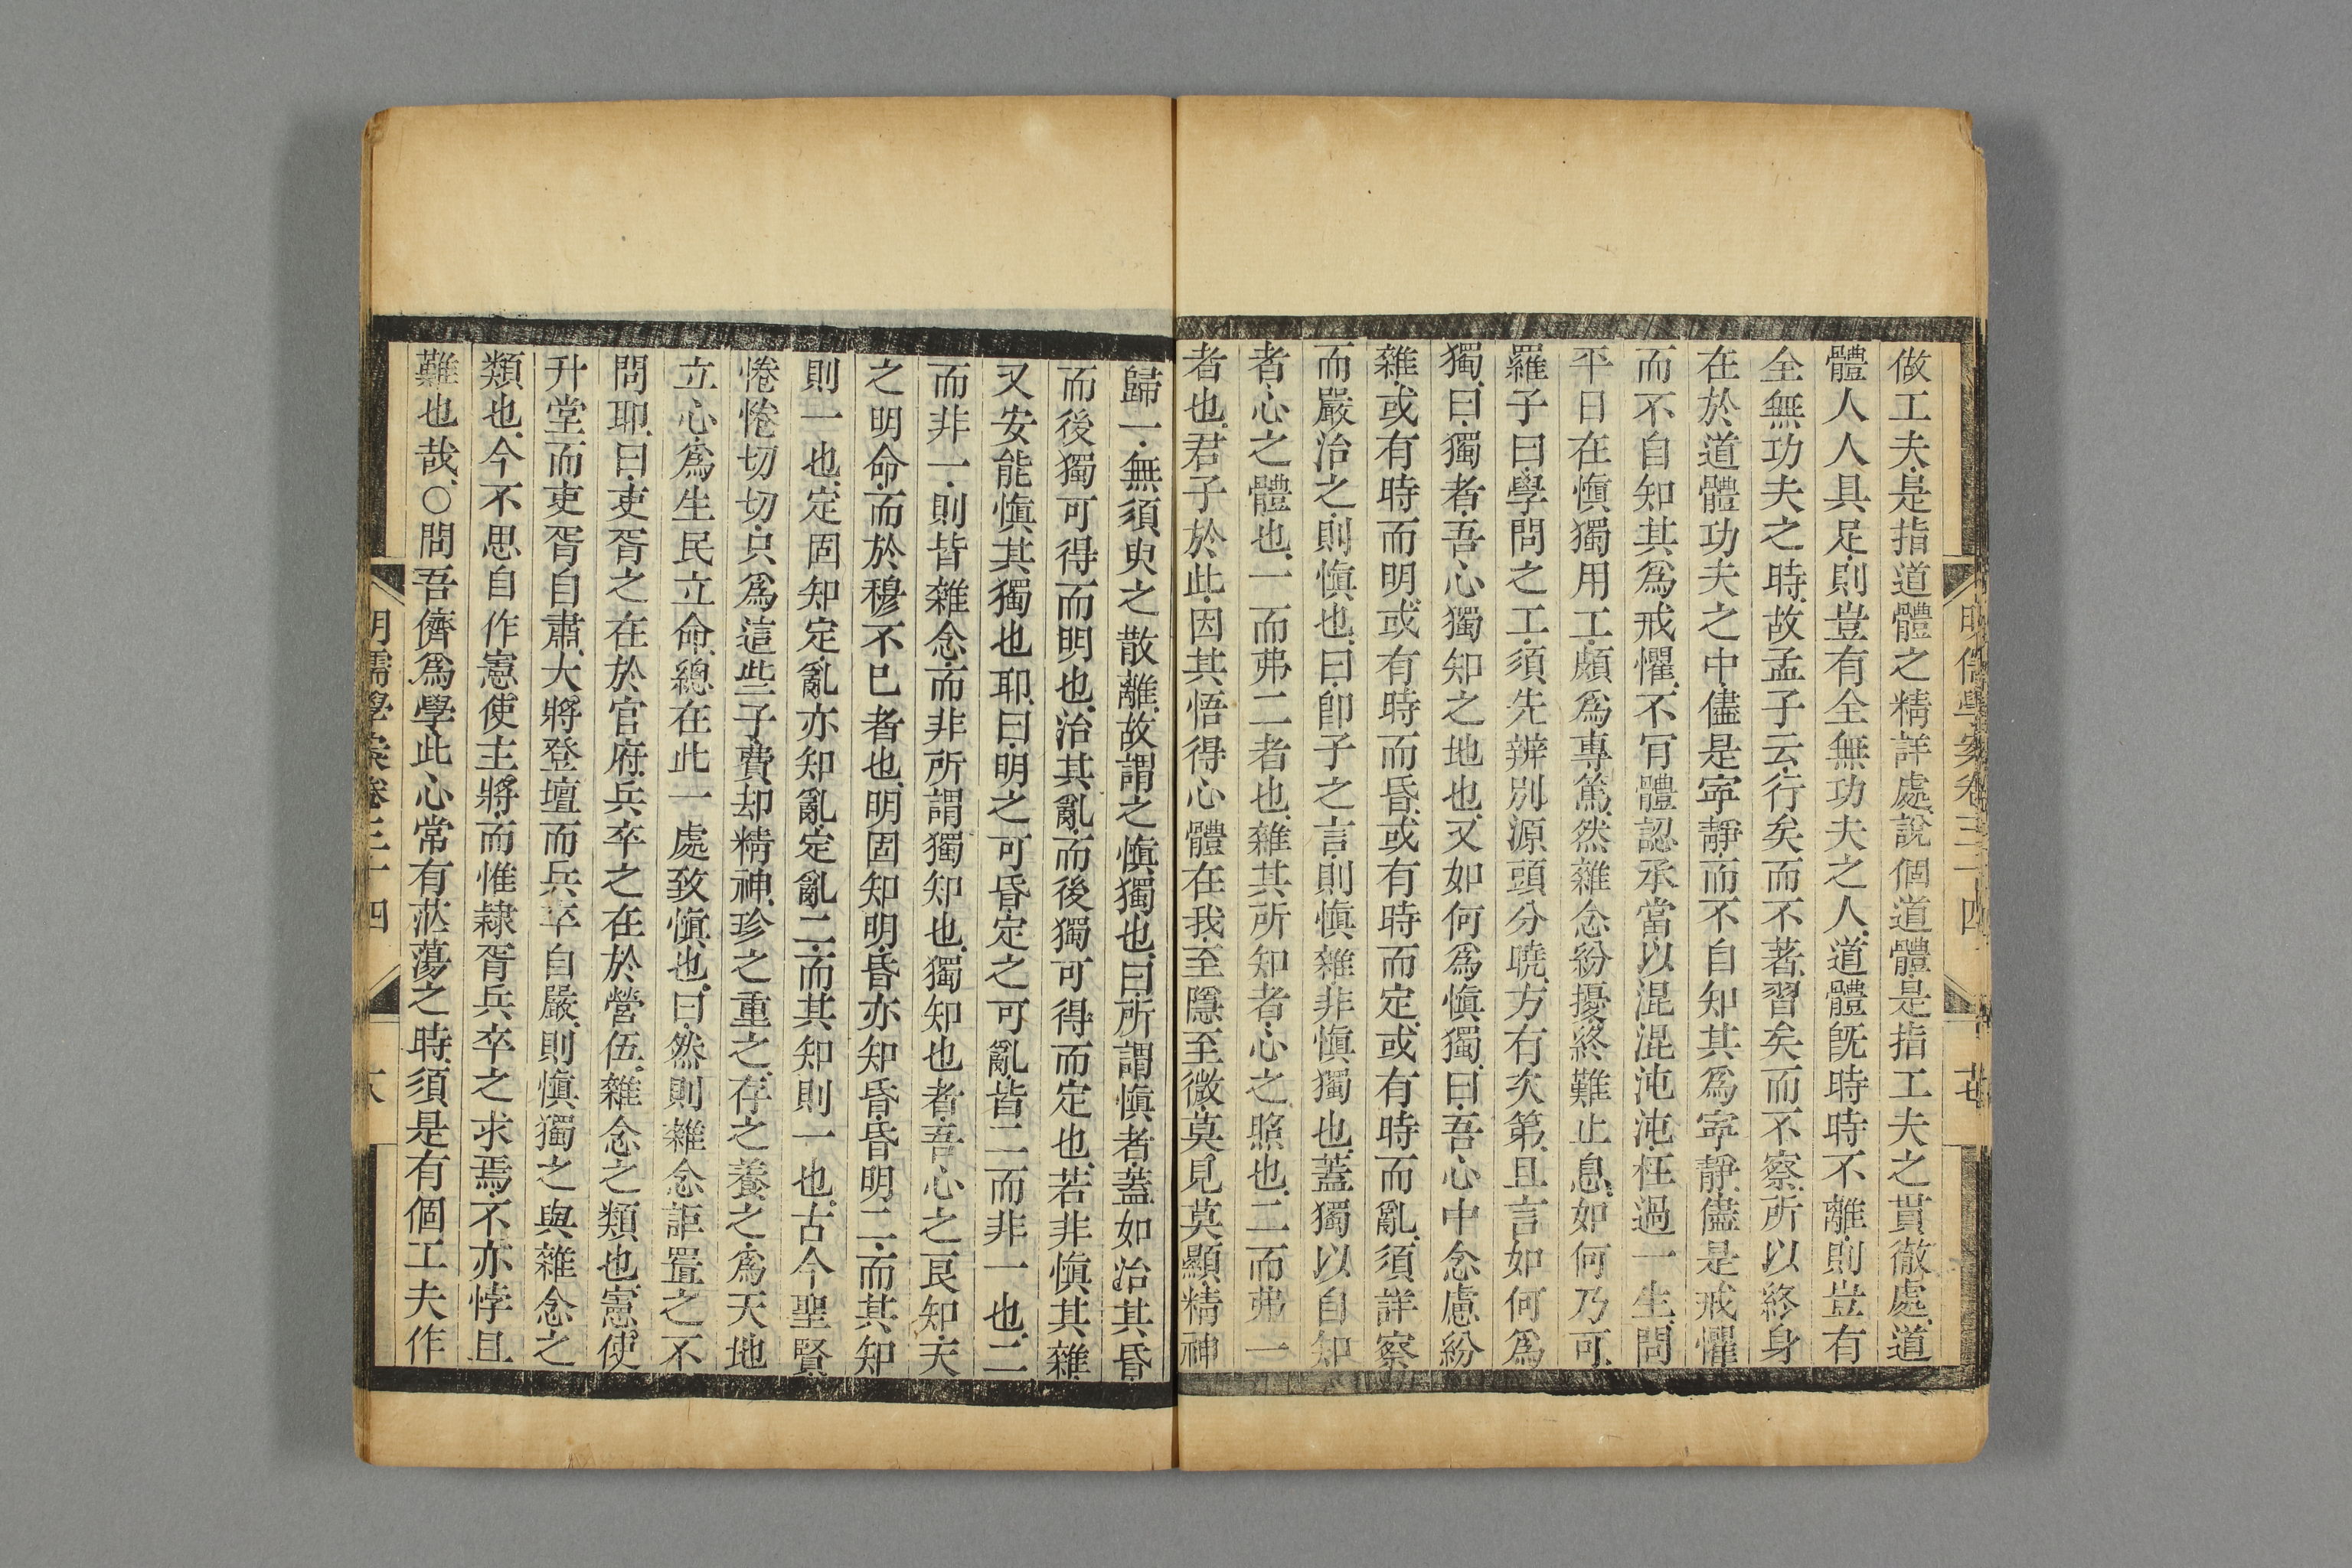 做工夫是指道體之精詳處說個道體是指工夫之貫徹處道
體人人具足則豈有全無功夫之人道體旣時時不離則豈有
全無功夫之時故孟子云行矣而不著習矣而不察所以終身
在於道體功夫之中儘是寕靜而不自知其爲寕靜儘是戒懼
而不自知其爲戒懼不肎體認承當以混混沌沌枉過一生問
平日在愼獨用工頗爲專篤然雜念紛擾終難止息如何乃可
羅子曰學問之工須先辨別源頭分曉方有次第且言如何爲
獨曰獨者吾心獨知之地也又如何爲愼獨曰吾心中念慮紛
雜或有時而明或有時而昏或有時而定或有時而亂須詳察
而嚴治之則愼也曰卽子之言則愼雜非愼獨也蓋獨以自知
者心之體也一而弗二者也雜其所知者心之照也二而弗一
者也君子於此因其悟得心體在我至隱至微莫見莫顯精神
歸一無須臾之散離故謂之愼獨也曰所謂愼者蓋如治其昏
而後獨可得而明也治其亂而後獨可得而定也若非愼其雜
又安能愼其獨也耶曰明之可昏定之可亂皆二而非一也二
而非一則皆雜念而非所謂獨知也獨知也者吾心之良知天
之明命而於穆不已者也明固知明昏亦知昏昏明二而其知
則一也定固知定亂亦知亂定亂二而其知則一也古今聖賢
惓惓切切只爲這些子費却精神珍之重之存之養之爲天地
立心爲生民立命總在此一處致愼也曰然則雜念詎置之不
問耶曰吏胥之在於官府兵卒之在於營伍雜念之類也憲使
升堂而吏胥自肅大將登壇而兵卒自嚴則愼獨之與雜念之
類也今不思自作憲使主將而惟隸胥兵卒之求焉不亦悖且
難也哉○問吾儕爲學此心常有茫蕩之時須是有個工夫作
明儒學案卷三十四